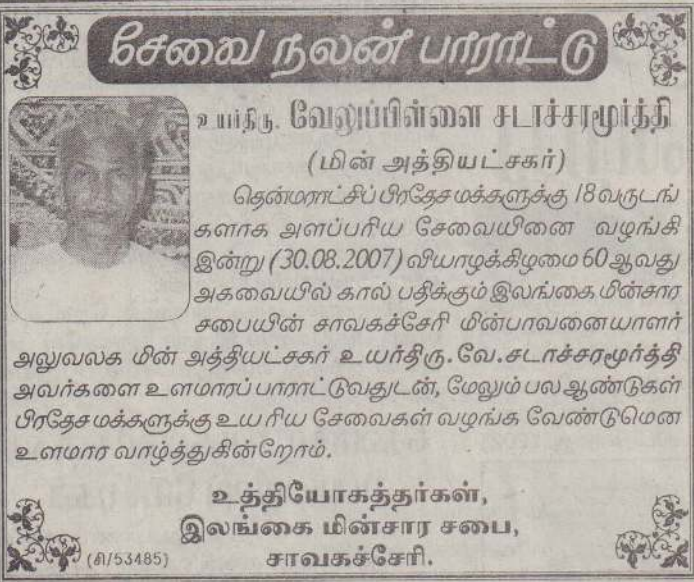 சேவை நலன் பாராட்டு
உயர்திரு. வேலுப்பிள்ளை சடாச்சரமூர்த்தி
(மின் அத்தியட்சகர்)
தென்மராட்சிப் பிரதேச மக்களுக்கு 18 வருடங்
களாக அளப்பரிய சேவையினை வழங்கி
இன்று (30.08.2007) வியாழக்கிழமை 60 ஆவது
அகவையில் கால் பதிக்கும் இலங்கை மின்சார
சபையின் சாவகச்சேரி மின்பாவனையாளர்
அலுவலக மின் அத்தியட்சகர் உயர்திரு. வே.சடாச்சரமூர்த்தி
அவர்களை உளமாரப் பாராட்டுவதுடன், மேலும் பல ஆண்டுகள்
பிரதேச மக்களுக்கு உயரிய சேவைகள் வழங்க வேண்டுமென
உளமார வாழ்த்துகின்றோம்.
உத்தியோகத்தர்கள்,
இலங்கை மின்சார சபை,
சாவகச்சேரி.
(சி/53485)